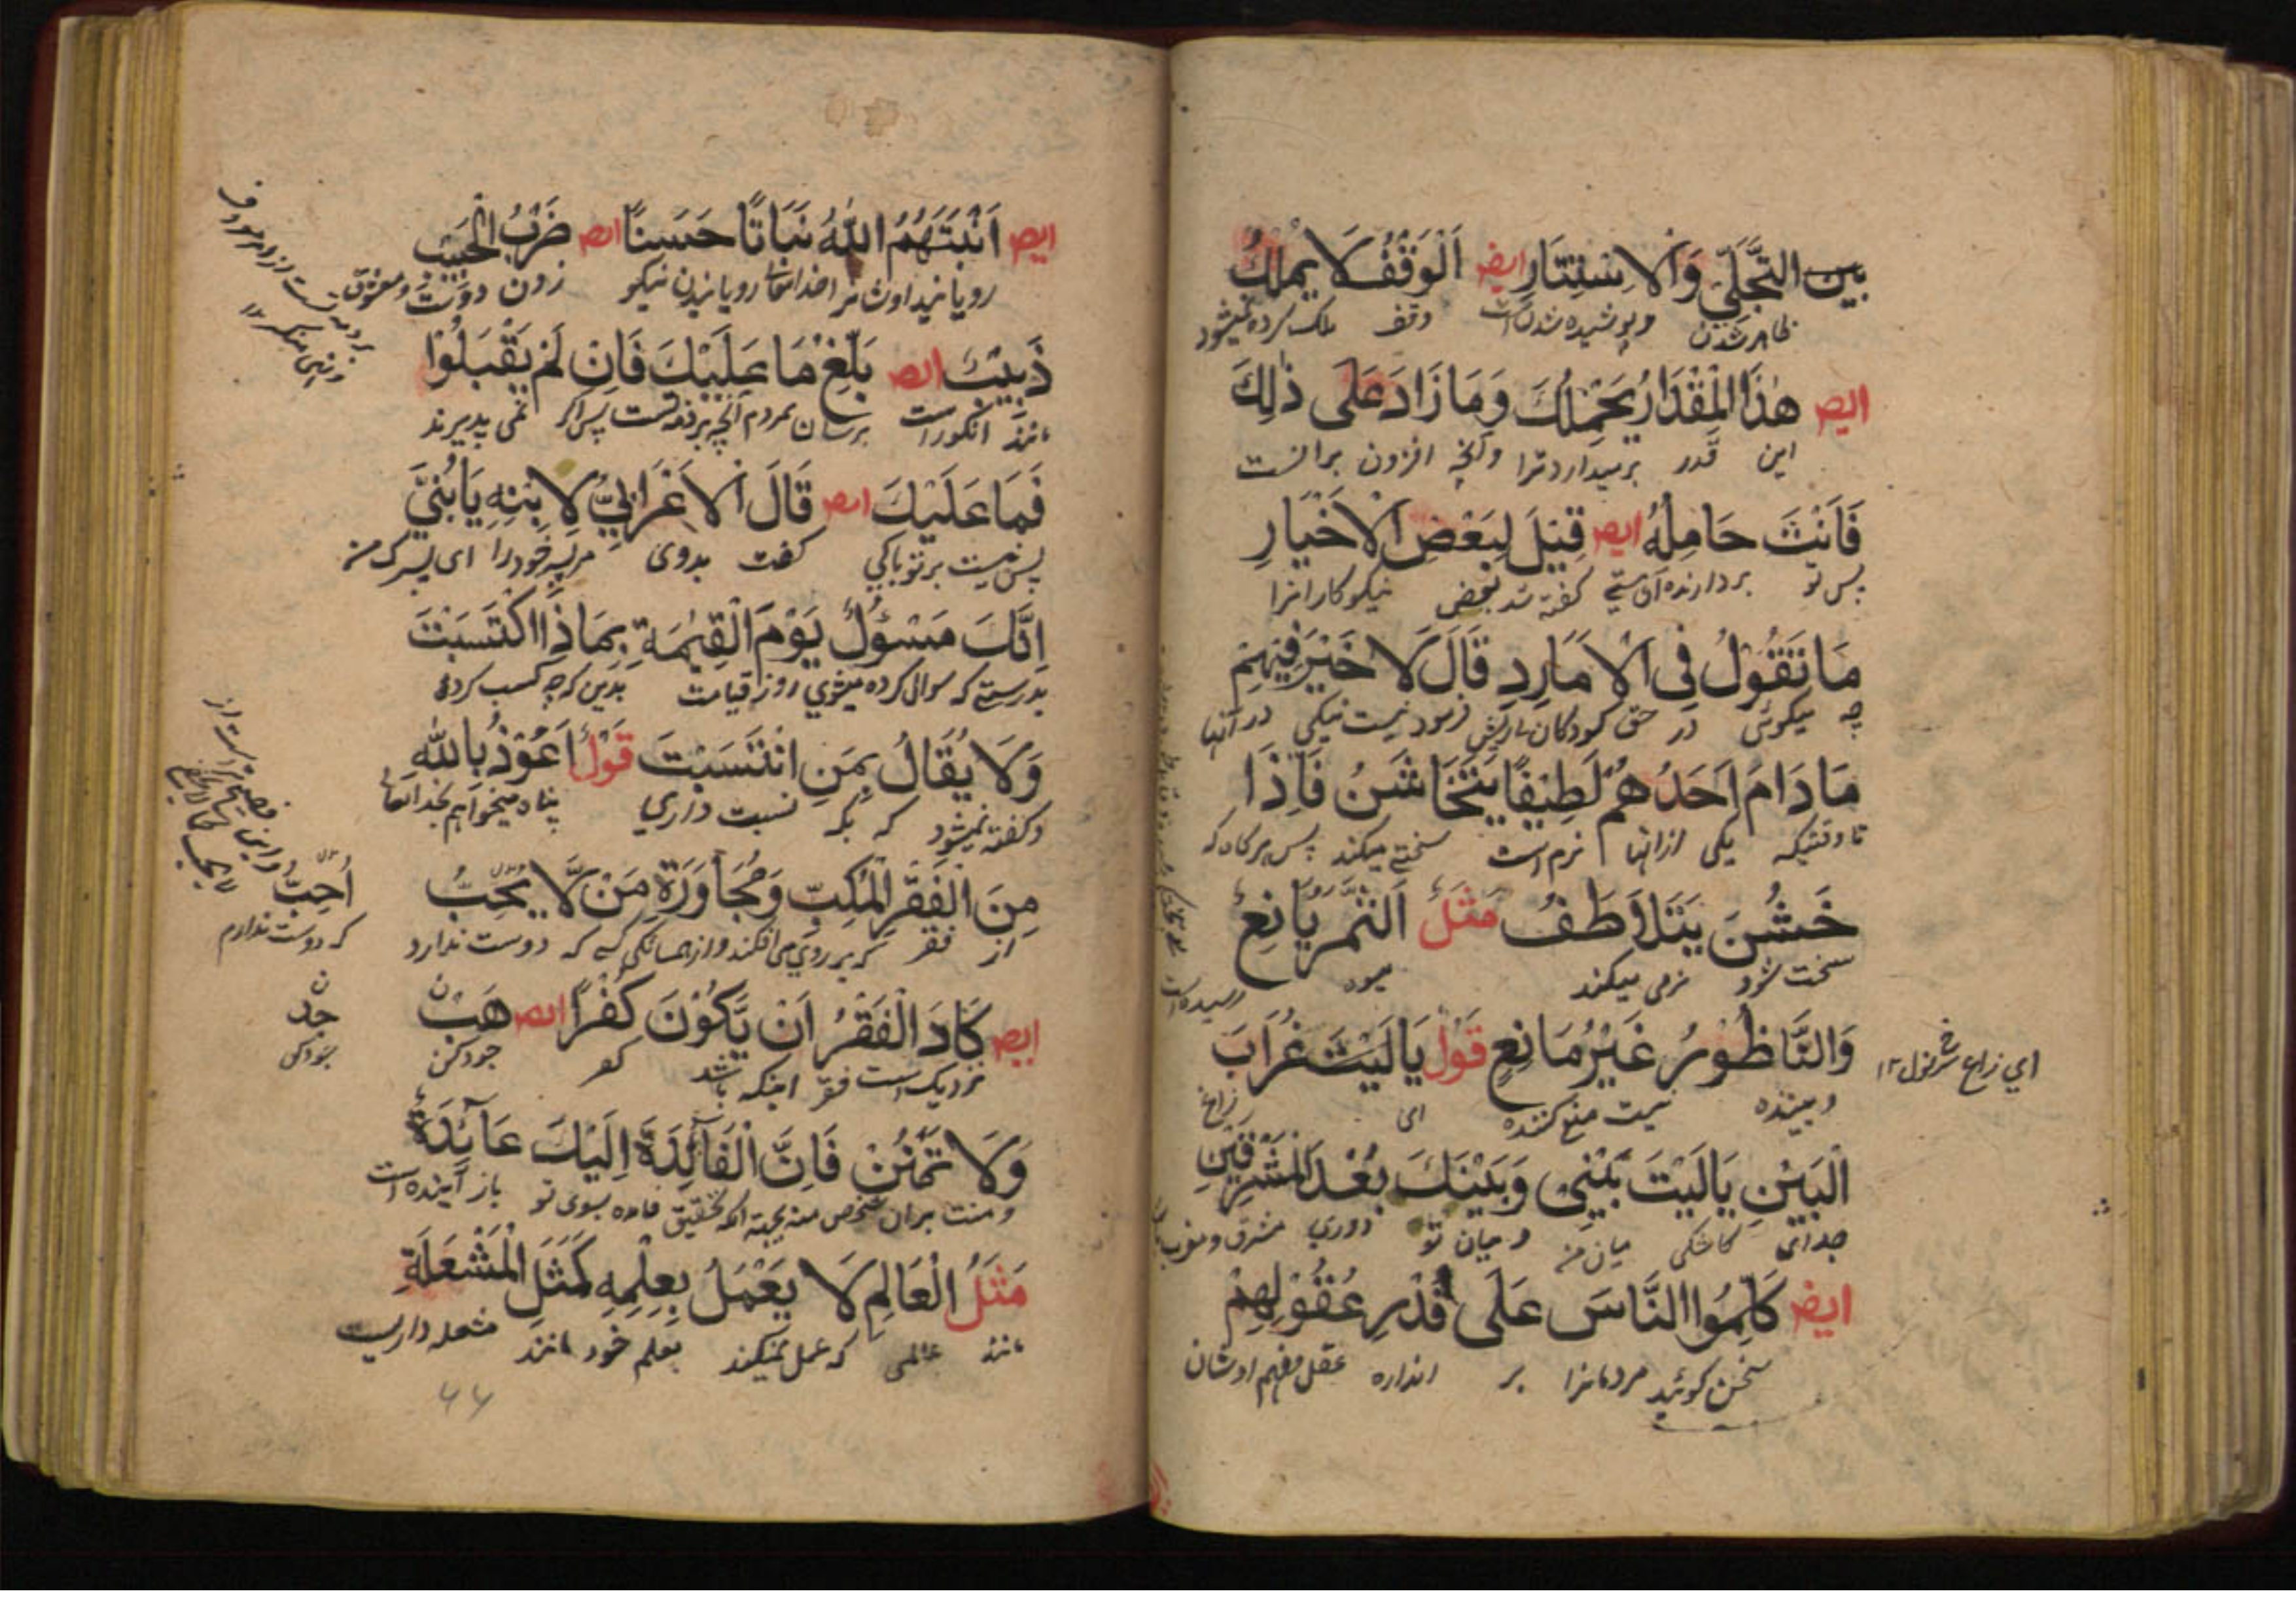 بَيْنَ التَّجَلِّيْ وَالْاِسْتِتَارِ ايضـ اَلْوَقْفُ لَا يُمْلَكُ
ظاهر شدن وپوشیده شدن است وقف ملک کرده نمیشود
ايضـ هٰذَا الْمِقْدَارُ يَحْمِلُكَ وَمَا زَادَ عَلٰى ذٰلِكَ
این قدر برمیدارد ترا وانچه افزون برانست
فَاَنْتَ حَامِلُهُ ايضـ قِيْلَ لِبَعْضِ الْاَخْيَارِ
پس تو بردارنده آن هستی گفته شد بعض نیکوکارانرا
مَا تَقُوْلُ فِي الْاَمَارِدِ قَالَ لَا خَيْرَ فِيْهِمْ
چه میگوئی در حق کودکان بی‌ریش فرمود نیست نیکی در آنها
مَادَامَ اَحَدُهُمْ لَطِيْفًا يَتَخَاشَنُ فَاِذَا
تا وقتیکه یکی از انها نرم است سختی میکند پس هرگاه که
خَشُنَ يَتَلَاطَفُ مَثَلٌ اَلثَّمَرُ يَانِعٌ
سخت شود نرمی میکند میوه رسیده است
وَالنَّاطُوْرُ غَيْرُ مَانِعٍ قَوْلُ يَا لَيْتَ غُرَابَ
وبیننده نیست منع کننده ای زاغ
الْبَيْنِ يَا لَيْتَ بَيْنِيْ وَبَيْنَكَ بُعْدَ الْمَشْرِقَيْنِ
جدائی کاشکی میان من ومیان تو دوری مشرق ومغرب
ايضـ كَلِّمُوا النَّاسَ عَلٰى قَدْرِ عُقُوْلِهِمْ
سخن گوئید مردمانرا بر اندازه عقل وفهم اوشان
ای زاغ ١٢
ايضـ اَنْبَتَهُمُ اللّٰهُ نَبَاتًا حَسَنًا ايضـ ضَرْبُ الْحَبِيْبِ
رویانید اوشانرا خدایتعالی رویانیدن نیکو زدن دوست ومعشوق
زَبِيْبٌ ايضـ بَلِّغْ مَا عَلَيْكَ فَاِنْ لَمْ يَقْبَلُوْا
مانند انگور است برسان بمردم آنچه بر ذمه تست پس اگر نمی پذیرند
فَمَا عَلَيْكَ ايضـ قَالَ الْاَعْرَابِيُّ لِابْنِهِ يَا بُنَيَّ
پس نیست بر تو باکی گفت بدوی مر پسر خود را ای پسرک من
اِنَّكَ مَسْؤُلٌ يَوْمَ الْقِيٰمَةِ بِمَاذَا اكْتَسَبْتَ
بدرستیکه سوال کرده میشوی روز قیامت بدین که چه کسب کردی
وَلَا يُقَالُ بِمَنِ انْتَسَبْتَ قَوْلٌ اَعُوْذُ بِاللّٰهِ
وگفته نمیشود که بکه نسبت داری پناه میخواهم بخدایتعالی
مِنَ الْفَقْرِ الْمُكِبِّ وَمُجَاوَرَةِ مَنْ لَّا يُحِبُّ
اُحِبُّ
از فقر که بر روی می افکند واز همسایگی کسی که دوست ندارد
که دوست ندارم
ايضـ كَادَ الْفَقْرُ اَنْ يَّكُوْنَ كُفْرًا ايضـ هَبْ
جُدْ
نزدیک است فقر اینکه باشد کفر جود کن
وَلَا تَمْنُنْ فَاِنَّ الْفَائِدَةَ اِلَيْكَ عَائِدَةٌ
ومنت بران شخص منه بجهة آنکه بتحقیق فایده بسوی تو باز آینده است
مَثَلُ الْعَالِمِ لَا يَعْمَلُ بِعِلْمِهِ كَمَثَلِ الْمَشْعَلَةِ
مانند عالمی که عمل نمیکند بعلم خود مانند مشعله داریست